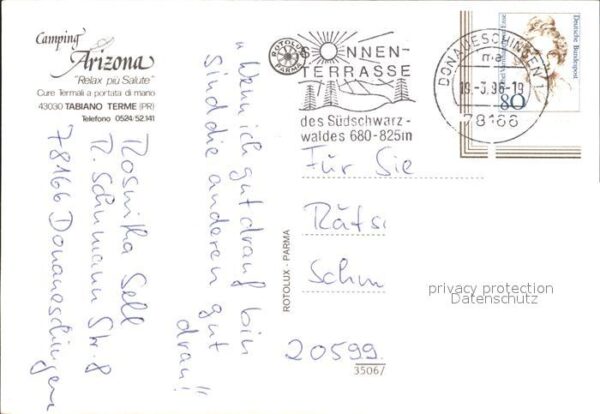 Camping
Arizona
"Relax più Salute"
Cure Termali a portata di mano
43030 TABIANO TERME (PR)
Telefono 0524/52.141
"Wenn ich gut drauf bin
sind die anderen gut
dran!!
R. Schumann Str. 8
78166 Donaueschingen
ROTOLUX
PARMA
SONNEN-
TERRASSE
des Südschwarz-
waldes 680-825m
DONAUESCHINGEN 1
ma
96-19
78166
Deutsche Bundespost
80
Für Sie
Rätsi
Schm
20599
ROTOLUX - PARMA
3506/
privacy protection
Datenschutz